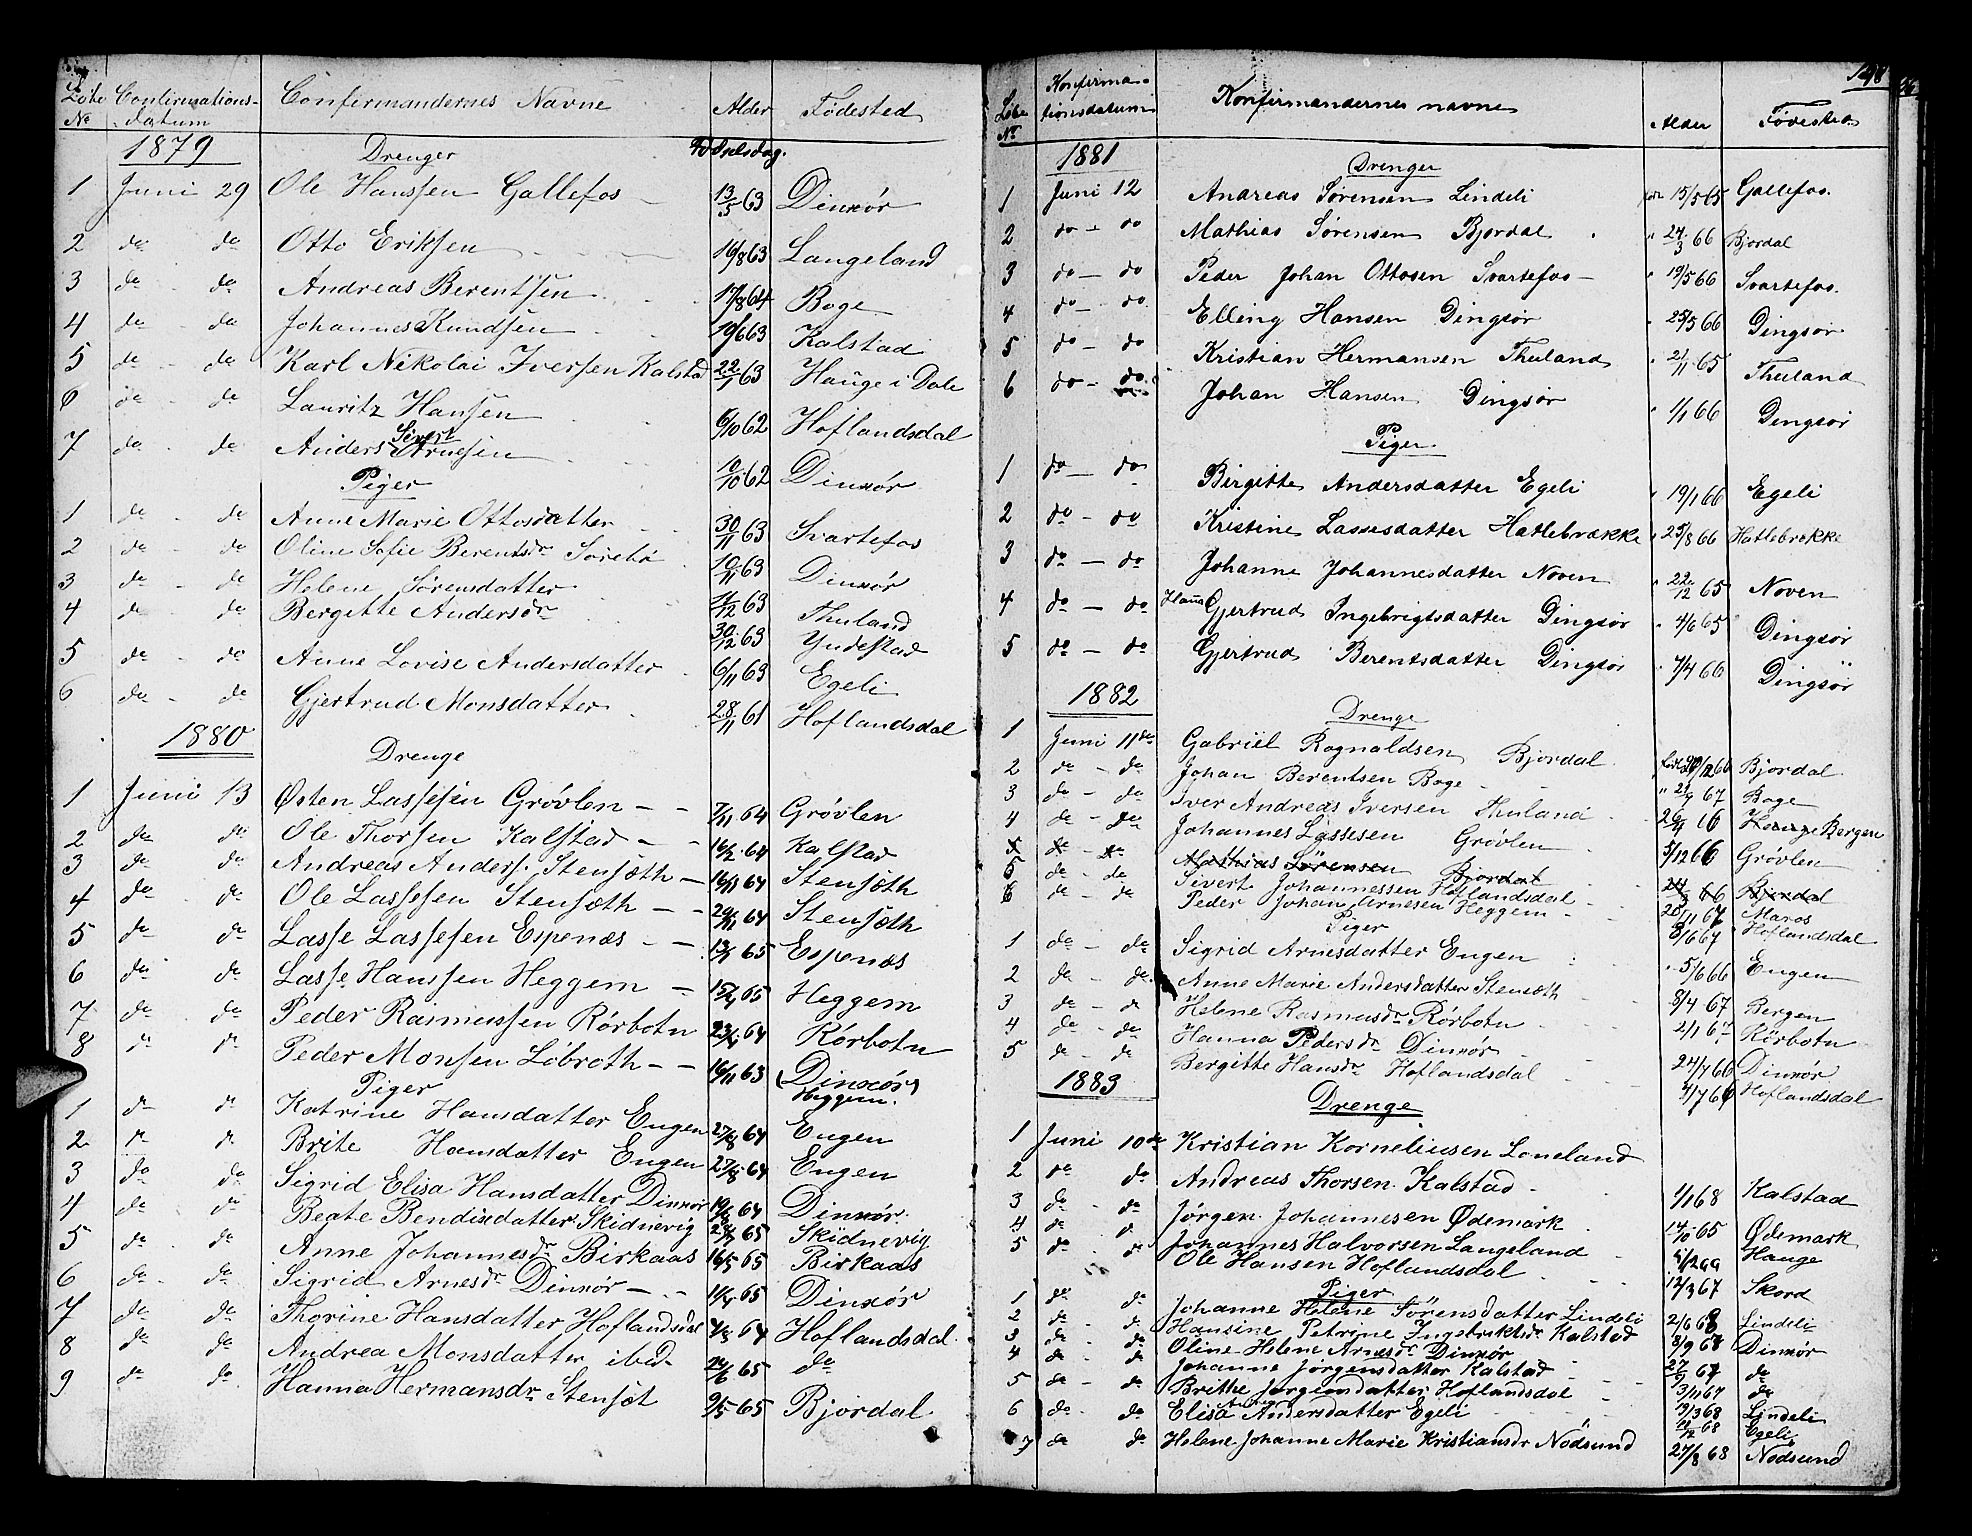 Løbe No Confirmations-datum Confirmandernes Navne Alder Fødested
1879 Drenger Fødselsdag.
1 Juni 29 Ole Hanssen Gallefos 13/5 63 Dinxör
2 do do Otto Eriksen 16/8 63 Langeland
3 do do Andreas Berentsen 17/8 64 Boge
4 do do Johannes Knudsen 10/6 63 Kalstad
5 do do Karl Nikolai Iversen Kalstad 22/1 63 Hauge i Dale
6 do do Lauritz Hansen 6/10 62 Hoflandsdal
7 do do Anders Sivert Arnesen 10/10 62 Dinxör
Piger
1 do do Anne Marie Ottosdatter 30/11 63 Svartefos
2 do do Oline Sofie Berentsdr 10/11 63 Dinxör
3 do do Helene Sørensdatter 11/12 63 Thuland
4 do do Bergitte Andersdr 30/12 63 Yndestad
5 do do Anne Lovise Andersdatter 6/11 63 Egeli
6 do do Gjertrud Monsdatter 28/11 61 Hoflandsdal
1880
Drenge
1 Juni 13 Østen Lassesen Grövlen 7/11 64 Grövlen
2 do do Ole Thorsen Kalstad 16/2 64 Kalstad
3 do do Andreas Anders. Stensæth 16/11 64 Stensæth
4 do do Ole Lassesen Stensæth 29/11 64 Stensæth
5 do do Lasse Lassesen Espenæs 13/1 65 Espenæs
6 do do Lasse Hanssen Heggem 15/4 65 Heggem
7 do do Peder Rasmussen Rörbotn 23/4 64 Rörbotn
8 do do Peder Monsen Löbroth 16/11 63 (Dinxör) Heggem.
Piger
1 do do Katrine Hansdatter Engen 27/8 64 Engen
2 do do Brite Hansdatter Engen 27/8 64 Engen
3 do do Sigrid Elisa Hansdatter Dinxör 19/6 64 Dinxör.
4 do do Beate Bendixdatter Skidnevig 28/3 65 Skidnevig
5 do do Anne Johannesdr Birkaas 16/5 65 Birkaas
6 do do Sigrid Arnesdr Dinxör 11/4 65 Dinxör
7 do do Thorine Hansdatter Hoflandsdal 4/8 64 Hoflandsdal
8 do do Andrea Monsdatter ibid 24/6 65 do
9 do do Hanna Hermansdr Stensæt 9/5 65 Bjordal
148
Løbe No Konfirmationsdatum Konfirmandernes navne Alder Fødested
1881
Drenger
1 Juni 12 Andreas Sørensen Lindeli 15/5 65 Gallefos.
2 do - do Mathias Sørensen Bjordal 24/3 66 Bjordal
3 do - do Peder Johan Ottosen Svartefos 19/5 66 Svartefos.
4 do - do Elling Hansen Dingsør 25/5 66 Dingsør
5 do - do Kristian Hermansen Thuland 21/11 65 Thuland
6 do - do Johan Hansen Dingsør 1/1 66 Dingsør
Piger
1 do - do Birgitte Andersdatter Egeli 19/1 66 Egeli
2 do - do Kristine Lassesdatter Hatlebrække 25/8 66 Hatlebrekke
3 do - do Johanne Johannesdatter Noven 22/12 65 Noven
4 do - do Hana Gjertrud Ingebrigtsdatter Dingsør 4/6 65 Dingsør
5 do - do Gjertrud Berentsdatter Dingsør 7/4 66 Dingsør
1882
Drenge
1 Juni 11de Gabriel Ragnaldsen Bjordal 66 Bjordal
2 do - do Johan Berentsen Boge 67 Boge
3 do - do Iver Andreas Iversen Thuland Hauge Bergen
4 do - do Johannes Lassesen Grövlen 3/12 66 Grövlen
5 do - do Mathias Sörensen Bjordal 24/3 66 Bjordal
5 do - do Sivert Johannessen Hoflandsdal 20/11 67 Maros
6 do - do Peder Johan Arnesen Heggem 8/6 67 Hoflandsdal
Piger
1 do - do Sigrid Arnesdatter Engen 5/6 66 Engen
2 do - do Anne Marie Andersdatter Stensæth 8/4 67 Bergen
3 do - do Helene Rasmusdr Rörbotn 2/1 67 Rörbotn
4 do - do Hanna Pedersdr Dinxör 24/7 66 Dinxör
5 do - do Bergitte Hansdr Hoflandsdal Hoflandsdal
1883
Drenge
1 Juni 10de Kristian Korneliusen Loneland
2 do do Andreas Thorsen Kalstad 1/1 68 Kalstad
3 do do Jørgen Johannesen Ødemark 14/10 65 Ødemark
4 do do Johannes Halvorsen Langeland Hauge
5 do do Ole Hansen Hoflandsdal 12/3 67 Skord
Piger
1 do do Johanne Helene Sörensdatter Lindeli 2/6 68 Lindeli
2 do do Hansine Petrine Ingebriktsdr Kalstad 8/9 68 Dinxör
3 do do Oline Helene Arnesdr Dinxör 27/9 67 do
4 do do Johanne Jörgensdatter Kalstad 3/11 67 do
5 do do Brithe Jørgensdatter Hoflandsdal 19/3 68 Lindeli
6 do do Elisa Andersdatter Egeli 68 Egeli
7 do do Helene Johanne Marie Kristiansdr Nödsund 27/8 68 Nödsund